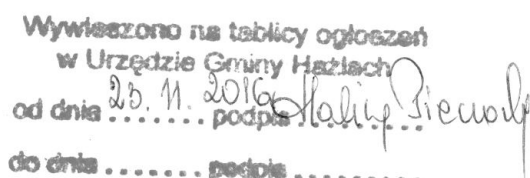 Wywieszono na tablicy ogłoszeń
w Urzędzie Gminy Hażlach
od dnia 23. 11. 2016 podpis Halina
do dnia ....... podpis ..........